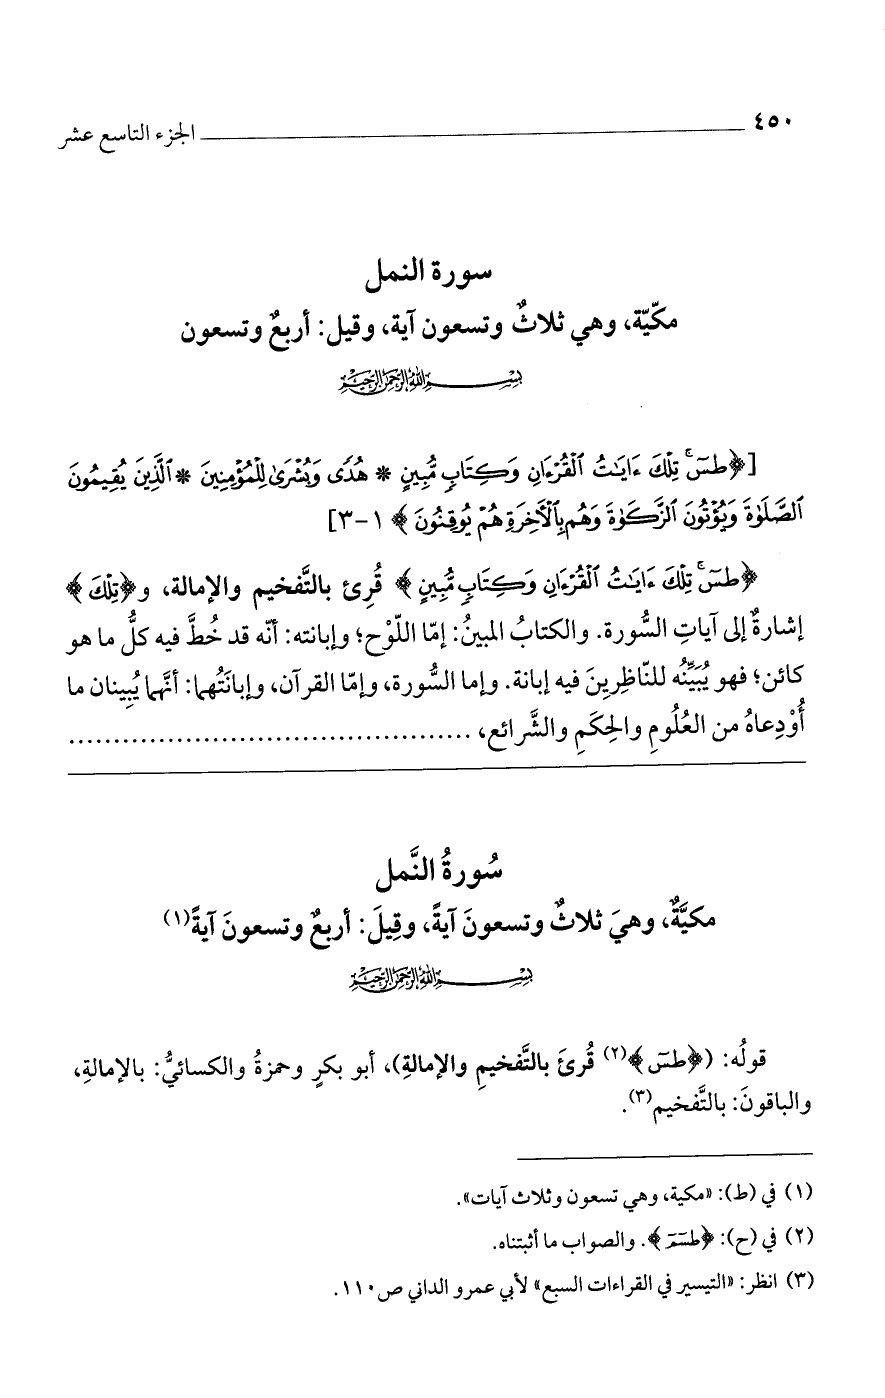 ٤٥٠ الجزء التاسع عشر
سورة النمل
مكيّة، وهي ثلاثٌ وتسعون آية، وقيل: أربعٌ وتسعون
بسم الله الرحمن الرحيم
[﴿طسٓ ۚ تِلْكَ ءَايَٰتُ ٱلْقُرْءَانِ وَكِتَابٍ مُّبِينٍ * هُدًى وَبُشْرَىٰ لِلْمُؤْمِنِينَ * ٱلَّذِينَ يُقِيمُونَ
ٱلصَّلَوٰةَ وَيُؤْتُونَ ٱلزَّكَوٰةَ وَهُم بِٱلْأَخِرَةِ هُمْ يُوقِنُونَ﴾ ١-٣]
﴿طسٓ ۚ تِلْكَ ءَايَٰتُ ٱلْقُرْءَانِ وَكِتَابٍ مُّبِينٍ﴾ قُرِئ بالتَّفخيم والإمالة، و﴿تِلْكَ﴾
إشارةٌ إلى آياتِ السُّورة. والكتابُ المبينُ: إمّا اللّوْح؛ وإبانته: أنّه قد خُطَّ فيه كلُّ ما هو
كائن؛ فهو يُبَيِّنُه للنّاظِرِينَ فيه إبانة. وإما السُّورة، وإمّا القرآن، وإبانَتُهما: أنَّهما يُبِينان ما
أُوْدِعاهُ من العُلُومِ والحِكَمِ والشَّرائع، ............................................
سُورةُ النَّمل
مكيَّةٌ، وهيَ ثلاثٌ وتسعونَ آيةً، وقِيلَ: أربعٌ وتسعونَ آيةً(١)
بسم الله الرحمن الرحيم
قولُه: (﴿طسٓ﴾(٢) قُرئَ بالتَّفخيمِ والإمالةِ)، أبو بكرٍ وحمزةُ والكسائيُّ: بالإمالةِ،
والباقونَ: بالتَّفخيم(٣).
(١) في (ط): «مكية، وهي تسعون وثلاث آيات».
(٢) في (ح): ﴿طسٓمٓ﴾. والصواب ما أثبتناه.
(٣) انظر: «التيسير في القراءات السبع» لأبي عمرو الداني ص١١٠.